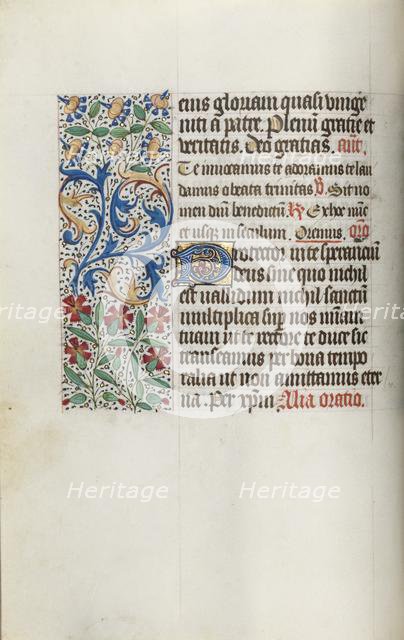 eius gloriam quasi vnige
niti a patre. Plenū gratie et
veritatis. Deo gratias. añt.
Te inuocamus te adoramus te lau
damus o beata trinitas ℣. Sit no
men dūi benedictū ℟ Ex hoc nūc
et usq; in seculum. Oremus. oro
Protector in te speranciū
deus sine quo nichil
est ualidum nichil sanctū
multiplica sup nos mīaȝ
tuam ut te rectore te duce sic
transeamus per bona tempo
ralia ut non amittamus eter
na. Per xpm̄ Alia oratio.
Heritage Heritage Heritage
Heritage Heritage Heritage